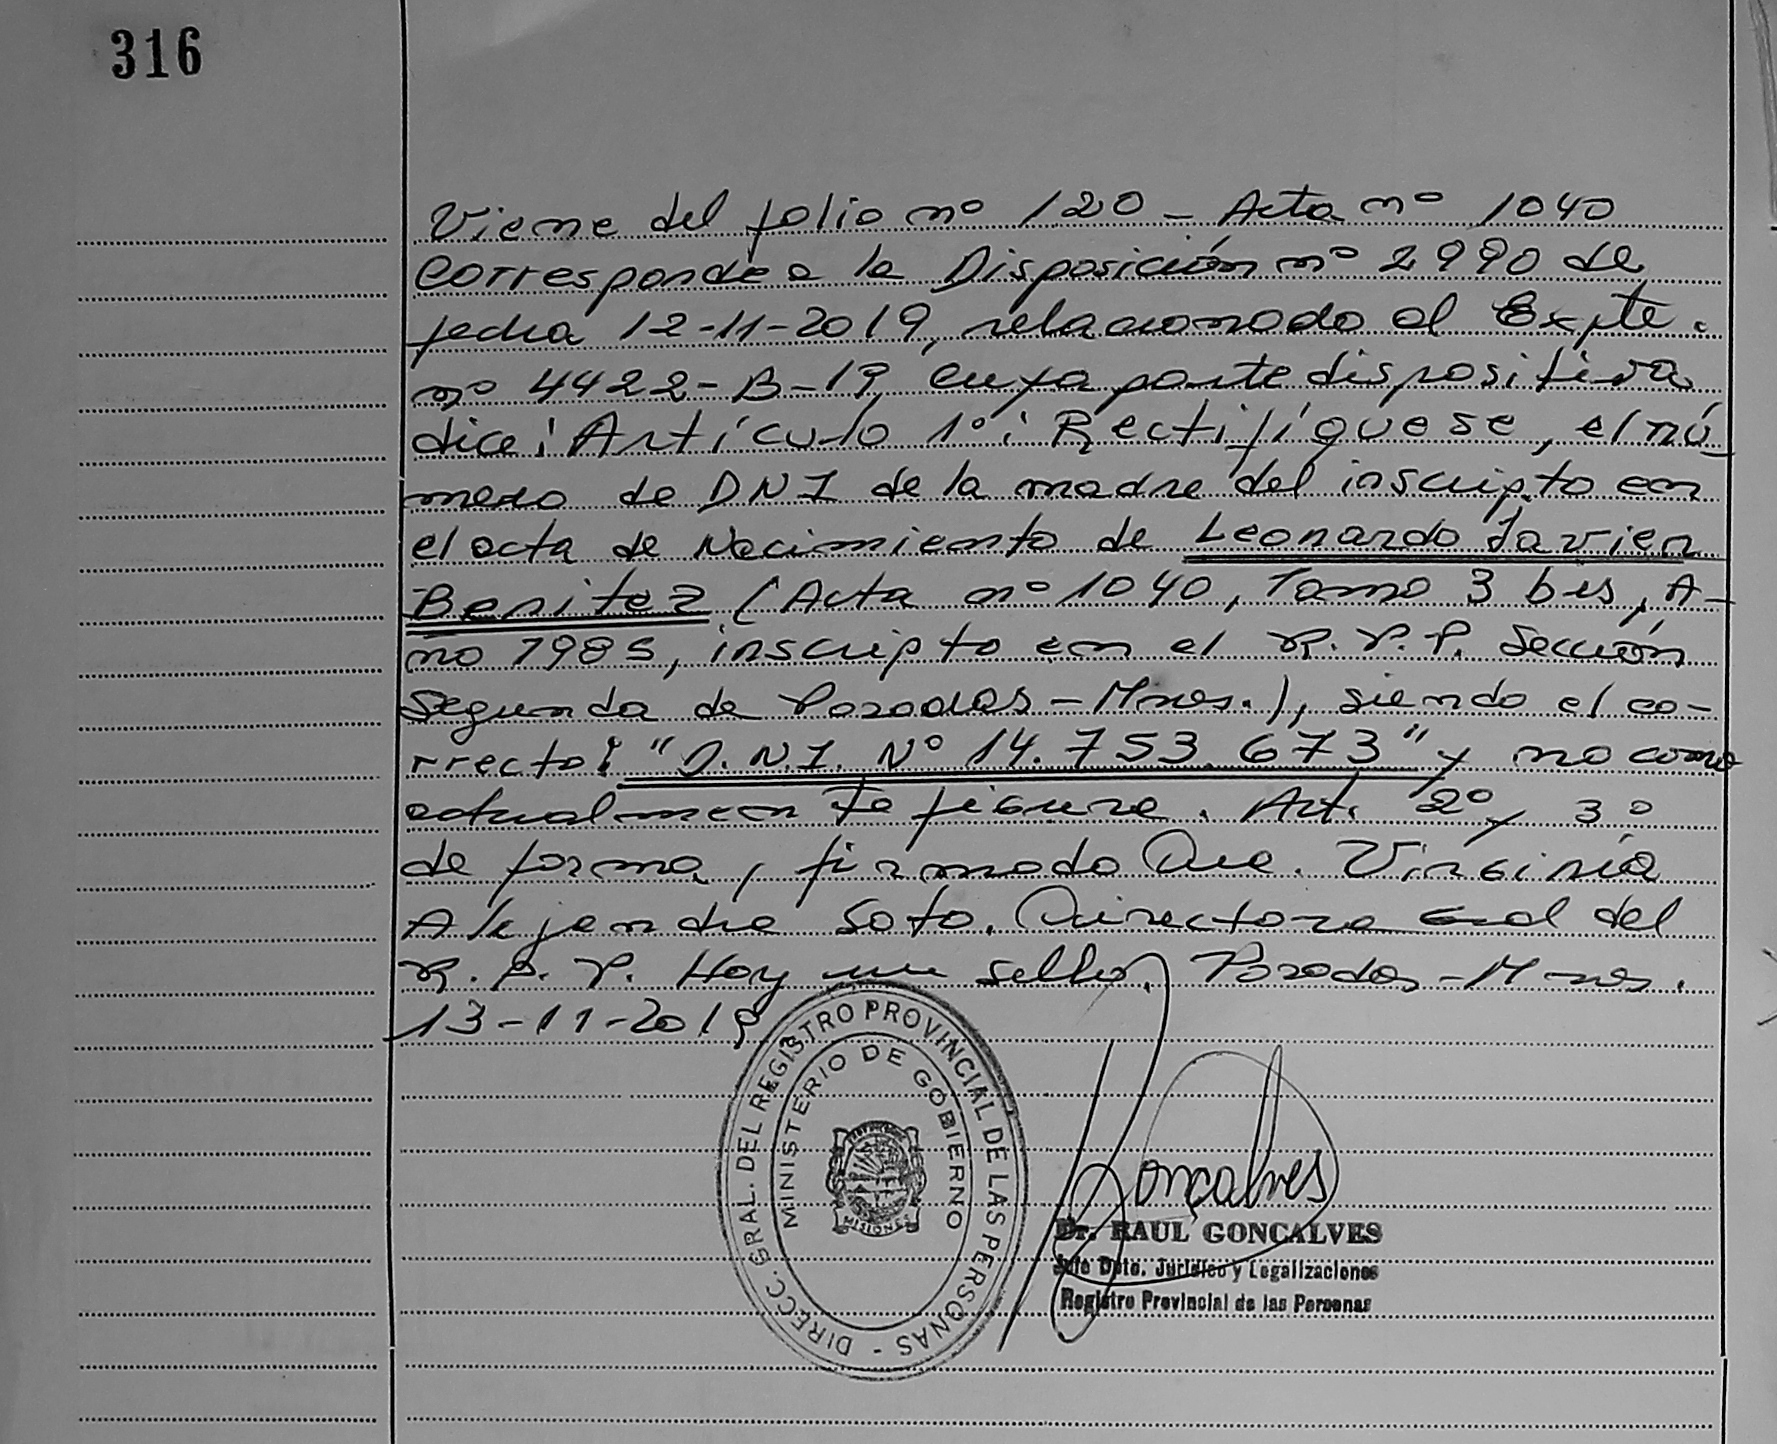 316
Viene del folio nº 120 - Acta nº 1040
Corresponde a la Disposición nº 2990 de
fecha 12-11-2019, relacionado al Expte.
nº 4422-B-19, cuya parte dispositiva
dice: Artículo 1º: Rectifíquese, el nú
mero de DNI de la madre del inscripto en
el acta de Nacimiento de Leonardo Javier
Benitez (Acta nº 1040, Tomo 3 bis, A-
ño 1985, inscripto en el R.P.P. Sección
Segunda de Posadas-Mnes.), siendo el co-
rrecto: "D.N.I. Nº 14.753.673" y no como
actualmente figura. Art. 2º y 3º
de forma, firmado Dra. Virginia
Alejandra Soto. Directora Gral del
R.P.P. Hay un sello. Posadas-Mnes.
13-11-2019
DIRECC. GRAL. DEL REGISTRO PROVINCIAL DE LAS PERSONAS -
MINISTERIO DE GOBIERNO
MISIONES
Goncalves
Dr. RAUL GONCALVES
Jefe Dpto. Jurídico y Legalizaciones
Registro Provincial de las Personas